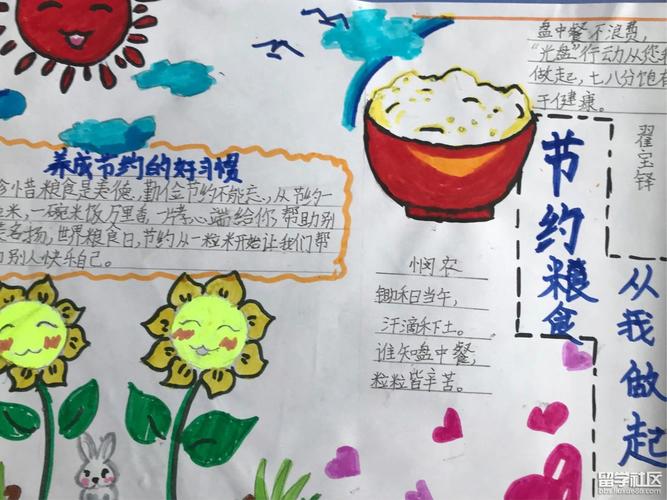 盘中餐不浪费,
“光盘”行动从您我
做起,七八分饱有
于健康。
翟宝铎
养成节约的好习惯
惜粮食是美德、勤俭节约不能忘、从节约一
米,一碗米饭万里香一孝心端给你帮助别
美名扬,世界粮食日,节约从一粒米开始让我们帮
别人快乐自己。
节约粮食
从我做起
悯农
锄禾日当午,
汗滴禾下土。
谁知盘中餐,
粒粒皆辛苦。
留学社区
bbs.liuxue86.com